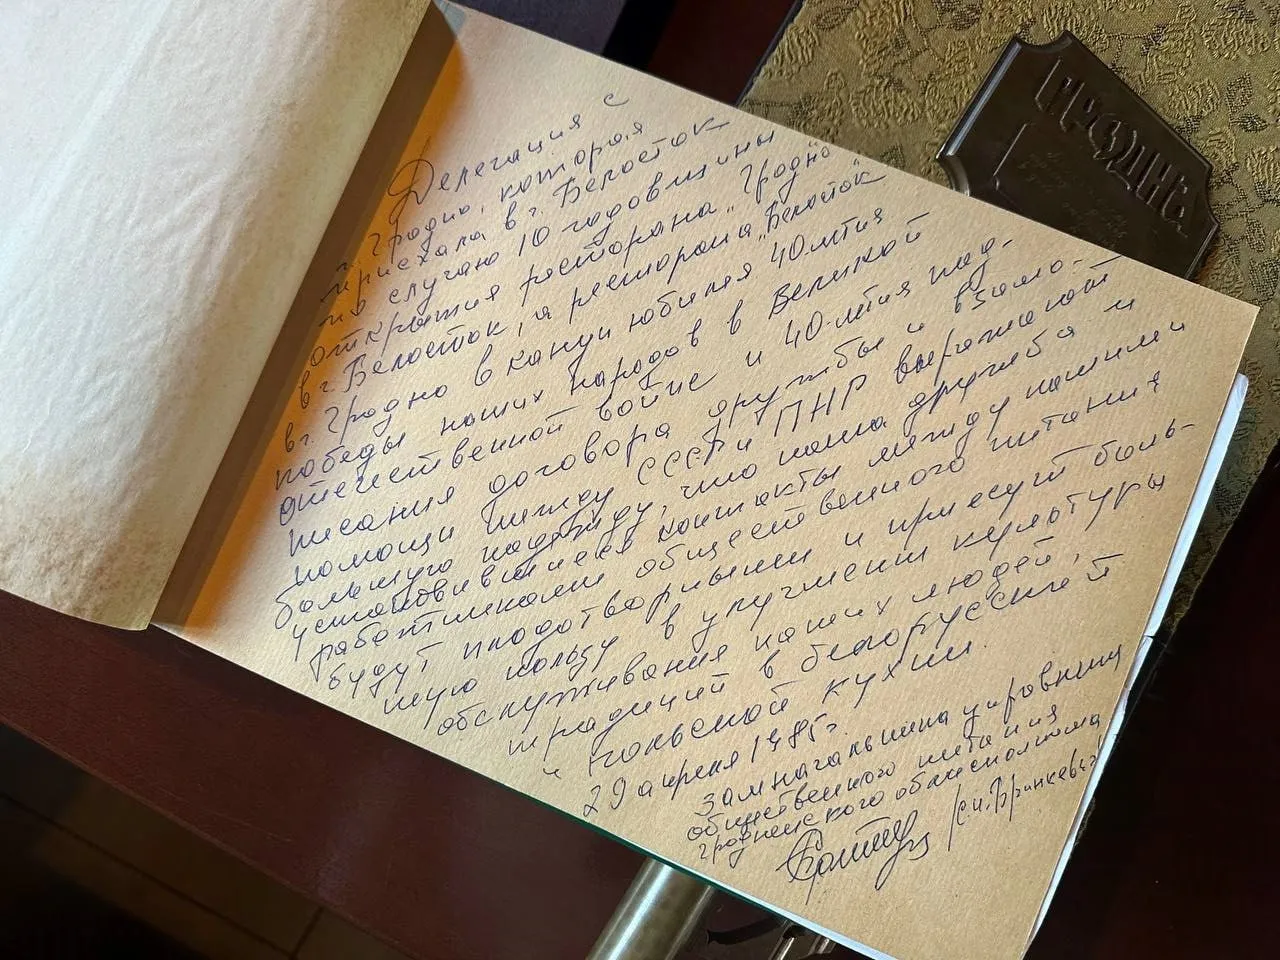 Делегация с
г. Гродно, которая
приехала в г. Белосток
по случаю 10 годовщины
открытия ресторана „Гродно
в г. Белосток, а ресторана „Белосток"
в г. Гродно в канун юбилея 40-летия
победы наших народов в Великой
отечественной войне и 40-летия под-
писания договора дружбы и взаимо-
помощи между СССР и ПНР выражают
большую надежду, что наша дружба и
установившиеся контакты между нашими
работниками общественного питания
будут плодотворными и принесут боль-
шую пользу в улучшении культуры
обслуживания наших людей,
традиций в белорусской
и польской кухни.
29 апреля 1985г.
зам начальника управления
общественного питания
Гродненского облисполкома
ГРОДНО